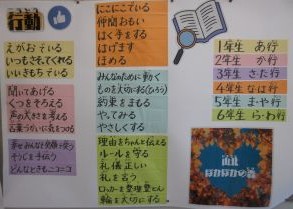 行動
えがおでいる
いつもささえてくれる
いいきもちでいる
聞いてあげる
くつをそろえる
声の大きさを考える
言葉づかいに気をつける
幸せなど発願を使う
そうじを手伝う
どんなときもニコニコ
にこにこでいる
仲間おもい
はく手をする
はげます
ほめる
みんなのために動く
ものを大切にする(ひろう)
約束をまもる
やってみる
やさしくする
理由をちゃんと伝える
ルールを守る
礼儀正しい
礼を言う
ロッカーを整理整とん
輪を大切にする
1年生 あ行
2年生 か行
3年生 さ・た行
4年生 な・は行
5年生 ま・や行
6年生 ら・わ行